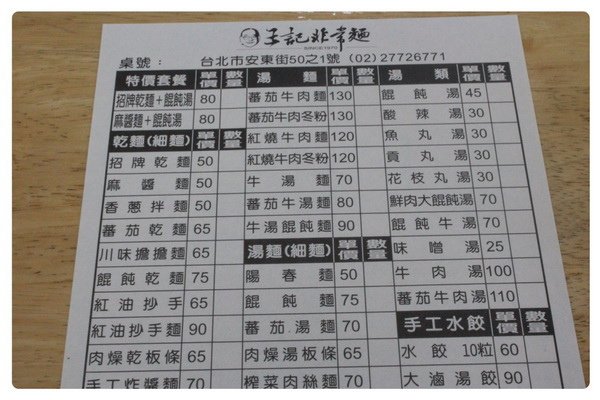 記非常麵
SINCE 1970
桌號： 台北市安東街50之1號 (02)27726771
特價套餐 單價 數量
招牌乾麵+餛飩湯 80
麻醬麵+餛飩湯 80
乾麵(細麵) 單價 數量
招牌乾麵 50
麻醬麵 50
香蔥拌麵 50
番茄乾麵 65
川味擔擔麵 65
餛飩乾麵 75
紅油抄手 65
紅油抄手麵 90
肉燥乾板條 65
手工炸醬麵 70
湯麵 單價 數量
蕃茄牛肉麵 130
蕃茄牛肉冬粉 130
紅燒牛肉麵 120
紅燒牛肉冬粉 120
牛湯麵 70
蕃茄牛湯麵 80
牛湯餛飩麵 90
湯麵(細麵) 單價 數量
陽春麵 50
餛飩麵 75
蕃茄.湯麵 70
肉燥湯板條 65
榨菜肉絲麵 70
湯類 單價 數量
餛飩湯 45
酸辣湯 30
魚丸湯 30
貢丸湯 30
花枝丸湯 30
鮮肉大餛飩湯 70
餛飩牛湯 70
味噌湯 25
牛肉湯 100
蕃茄牛肉湯 110
手工水餃 單價 數量
水餃10粒 60
大滷湯餃 90